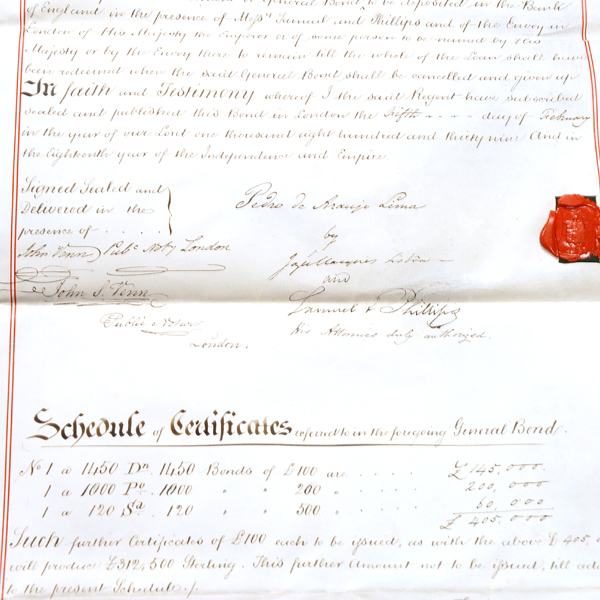 General Bond to be deposited in the Bank
of England in the presence of Mess.rs Samuel and Phillips and of the Envoy in
London of His Majesty the Emperor or of some person to be named by His
Majesty or by the Envoy there to remain till the whole of the Loan shall have
been redeemed when the said General Bond shall be cancelled and given up
In faith and Testimony whereof I the said Regent have subscribed
sealed and published this Bond in London the Fifth - - - - day of February
in the year of our Lord one thousand eight hundred and thirty nine And in
the Eighteenth year of the Independence and Empire.
Signed Sealed and
Delivered in the
presence of . . . . .
John Venn Pub.c Not.y London
John S. Venn
Public Notary
London.
Pedro de Araujo Lima
by
Joze Marques Lisboa
and
Samuel & Phillips
His Attornies duly authorized.
Schedule of Certificates referred to in the foregoing General Bond.
No 1 a 1450 Dn. 1450 Bonds of £100 are . . . . . £ 145,000
1 a 1000 Po. 1000 " " 200 " . . . . 200,000
1 a 120 Sa. 120 " " 500 " . . . . 60,000
£ 405,000
Such further Certificates of £100 each to be issued, as with the above £405,
will produce £312,500 Sterling. This further Amount not to be issued, till
to the present Schedule.